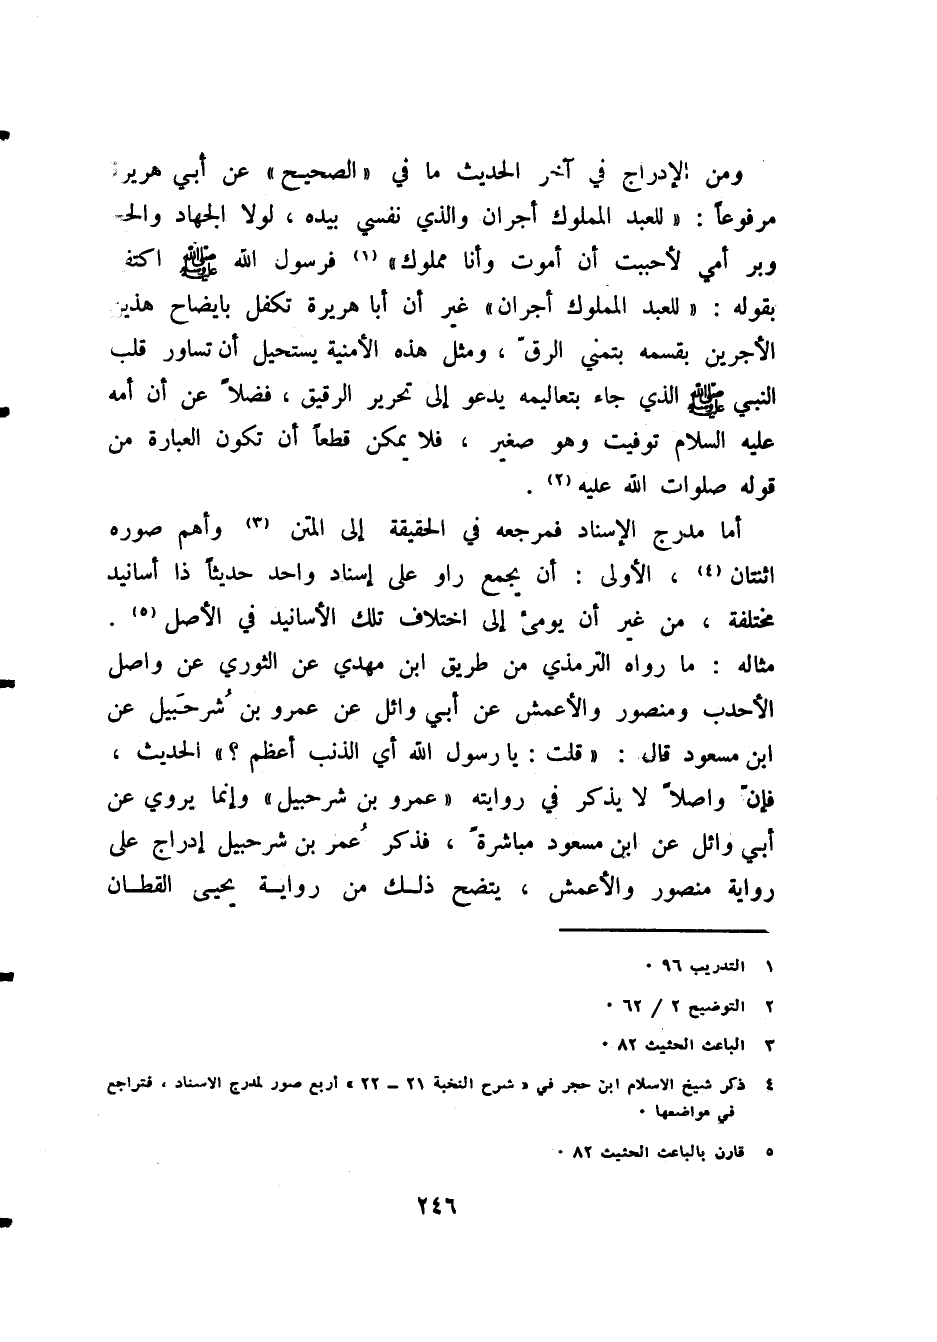 ومن الإدراج في آخر الحديث ما في « الصحيح » عن أبي هريرة
مرفوعاً : « للعبد المملوك أجران والذي نفسي بيده ، لولا الجهاد والحـ
وبر أمي لأحببت أن أموت وأنا مملوك» (١) فرسول الله ﷺ اكتفـ
بقوله : « للعبد المملوك أجران» غير أن أبا هريرة تكفل بايضاح هذين
الأجرين بقسمه بتمني الرقّ ، ومثل هذه الأمنية يستحيل أن تساور قلب
النبي ﷺ الذي جاء بتعاليمه يدعو إلى تحرير الرقيق ، فضلاً عن أن أمه
عليه السلام توفيت وهو صغير ، فلا يمكن قطعاً أن تكون العبارة من
قوله صلوات الله عليه (٢) .
أما مدرج الإسناد فمرجعه في الحقيقة إلى المتن (٣) وأهم صوره
اثنتان (٤) ، الأولى : أن يجمع راو على إسناد واحد حديثاً ذا أسانيد
مختلفة ، من غير أن يومئ إلى اختلاف تلك الأسانيد في الأصل (٥) .
مثاله : ما رواه الترمذي من طريق ابن مهدي عن الثوري عن واصل
الأحدب ومنصور والأعمش عن أبي وائل عن عمرو بن شُرحَبيل عن
ابن مسعود قال : « قلت : يا رسول الله أي الذنب أعظم ؟ » الحديث ،
فإنّ واصلاً لا يذكر في روايته « عمرو بن شرحبيل » وإنما يروي عن
أبي وائل عن ابن مسعود مباشرةً ، فذكر عُمر بن شرحبيل إدراج على
رواية منصور والأعمش ، يتضح ذلـك من روايـة يحيى القطـان
١ التدريب ٩٦ ٠
٢ التوضيح ٢ / ٦٢ ٠
٣ الباعث الحثيث ٨٢ ٠
٤ ذكر شيخ الاسلام ابن حجر في « شرح النخبة ٢١ – ٢٢ » أربع صور لمدرج الاسناد ، فتراجع
في مواضعها ٠
٥ قارن بالباعث الحثيث ٨٢ ٠
٢٤٦